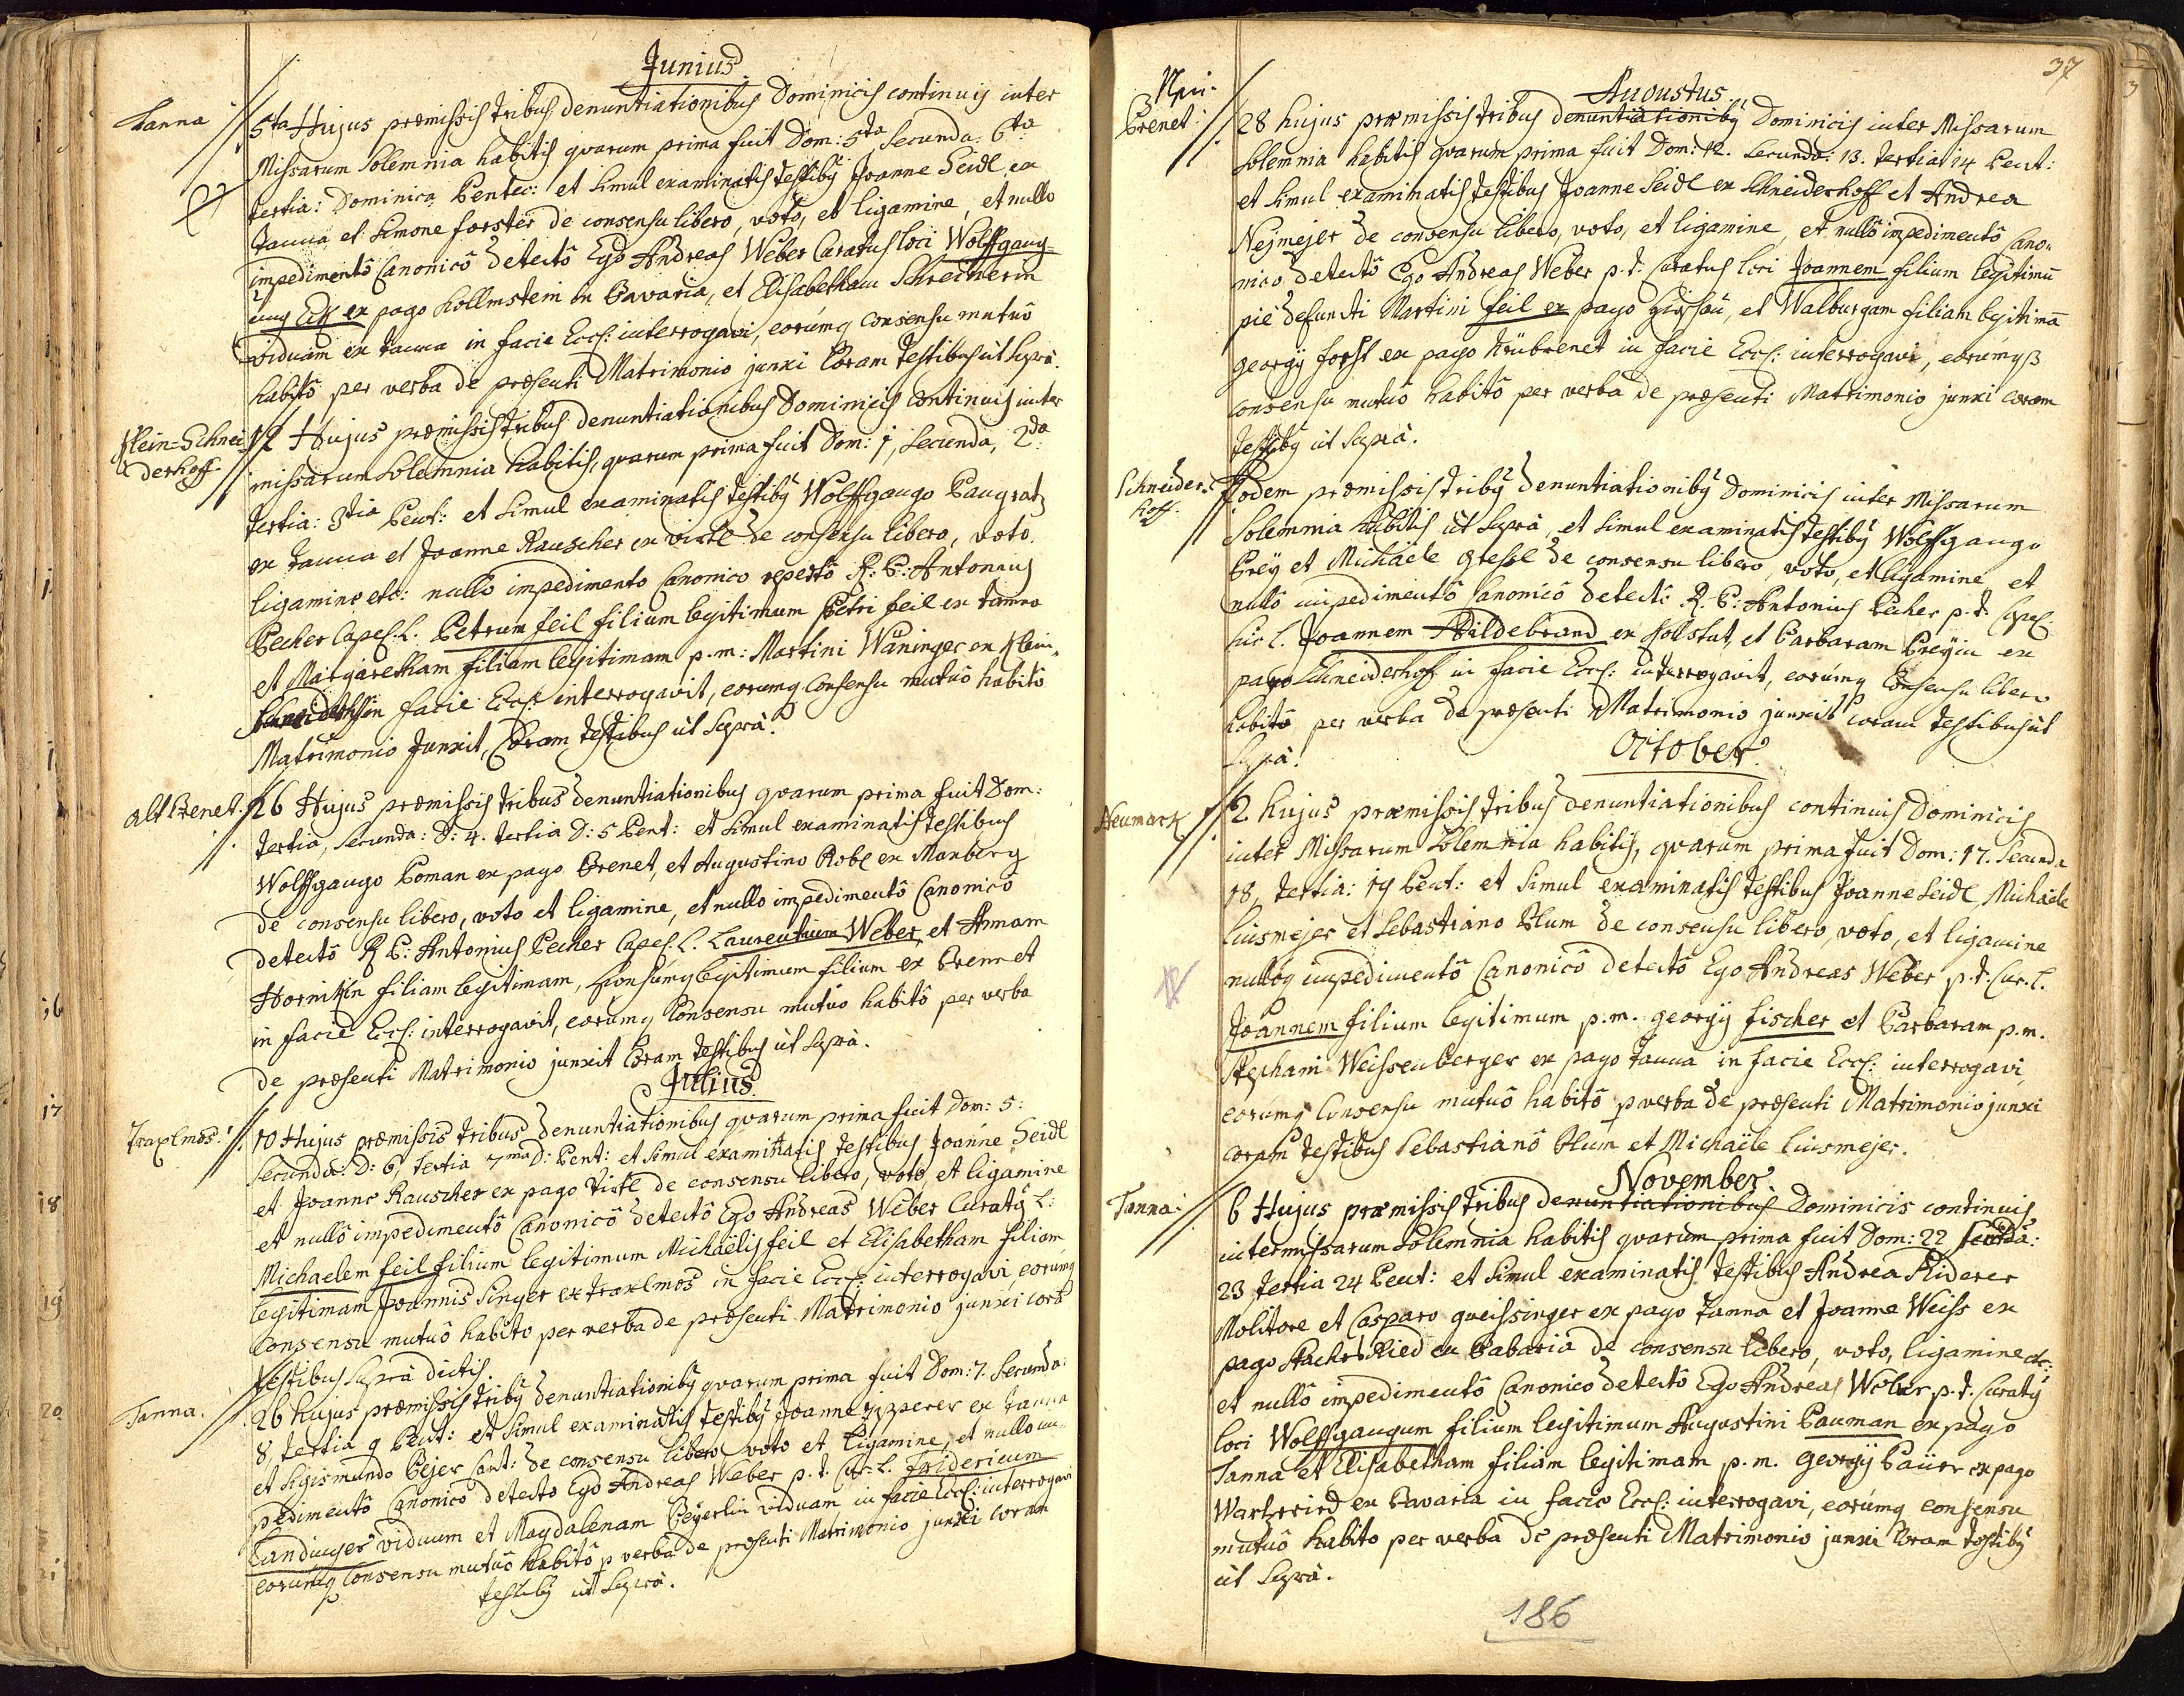 Junius
Tanna
5ta Hujus præmissis tribus denuntiationibus Dominicis continuis inter
Missarum Solemnia habitis quarum prima fuit Dom: 5ta Secunda: 6ta
tertia: Dominica Pentec: et simul examinatis testibus Joanne Seidl ex
Tanna et Simone forster de consensu libero, voto, et ligamine, et nullo
impedimentô Canonicô detectô Ego Andreas Weber Curatus loci Wolffgang=
ex pago Kollmstein in Bavaria, et Elisabetham Schreinerin
viduam ex Tanna in facie Eccl: interrogavi, eorumq consensu mutuô
habitô per verba de præsenti Matrimonio junxi Coram testibus ut supra.
Klein=Schnei
derhoff.
12 Hujus præmissis tribus denuntiationibus Dominicis continuis inter
missarum Solemnia habitis, quarum prima fuit Dom: 1, Secunda, 2da
tertia: 3tia Pent: et simul examinatis testibus Wolffgango Pangratz
ex Tanna et Joanne Rauscher ex Viertl de consensu libero, voto
ligamine etc: nullo impedimento Canonico repertô R: P: Antonius
Pecher Capel. L. Petrum feil filium legitimum Petri feil ex Tanna
et Margaretham filiam legitimam p.m: Martini Waninger ex Klein,
in facie Eccl: interrogavit, eorumq consensu mutuô habitô
Matrimonio Junxit, Coram testibus ut supra.
Alt Brenet.
26 Hujus præmissis tribus denuntiationibus quarum prima fuit Dom:
tertia, secunda: D: 4. tertia D: 5 Pent: et simul examinatis testibus
Wolffgango Boman ex pago Brenet, et Augustino Robl ex Marberg
de consensu libero, voto et ligamine, et nullo impedimentô Canonicô
detectô R P: Antonius Pecher Capel. L. Laurentium Weber, et Annam
filiam legitimam, legitimum filium ex Brennet
in facie Eccl: interrogavit, eorumq Consensu mutuo habitô per verba
de præsenti Matrimonio junxit Coram testibus ut supra.
Julius
Traxlmos.
10 Hujus præmissis tribus denuntiationibus quarum prima fuit Dom: 5:
Secunda: D: 6, tertia 7ma D: Pent: et simul examinatis testibus Joanne Seidl
et Joanne Rauscher ex pago Viertl de consensu libero, voto, et ligamine
et nullô impedimentô Canonicô detectô Ego Andreas Weber Curatus L:
Michaelem feil filium legitimum Michaëlis feil et Elisabetham filiam
legitimam Joannis Singer ex Traxlmos in facie Eccl: interrogavi eorumq
Consensu mutuô habito per verba de præsenti Matrimonio junxi corā
testibus supra dictis.
Tanna.
26 hujus præmissis tribus denuntiationibus quarum prima fuit Dom: 7. Secunda:
8, tertia 9 Pent: et simul examinatis testibus Joanne Zipperer ex Tanna
et Sigismundo Pejer Cant: de consensu libero voto et ligamine, et nullo im-
pedimentô Canonico detecto Ego Andreas Weber p. t. Cur. L. Fridericum
Landinger viduum et Magdalenam Peyerlin viduam in facie Eccl: interrogavi
eorumq consensu mutuô habitô p verba de præsenti Matrimonio junxi coram
testibus ut supra.
37
Augustus
Neu-
Brenet:
28 hujus præmissis tribus denuntiationibus Dominicis inter Missarum
Solemnia habitis quarum prima fuit Dom: 12. Secunda: 13. tertia 14 Pent:
et simul examinatis testibus Joanne Seidl ex Schneiderhoff et Andrea
Nejmejer de consensu libero, voto, et ligamine, et nullô impedimentô Cano-
nico detectô Ego Andreas Weber p. t. Curatus loci Joannem filium legitimū
piè defuncti Martini feil ex pago Hirshau, et Walburgam filiam legitimā
georgÿ forst ex pago Neübrenet in facie Eccl: interrogavi, eorumqß
consensu mutuô habitô per verba de præsenti Matrimonio junxi coram
testibus ut supra.
Schneider-
hoff.
Eodem præmissis tribus denuntiationibus Dominicis inter Missarum
Solemnia habitis ut supra, et simul examinatis testibus Wolffgango
Preÿ et Michäele gressl de consensu libero, voto, et ligamine et
nullô impedimentô Canonicô detectô R. P: Antonius Pecher p. t. Capel.
hic l. Joannem Hildebrand ex Hollstat, et Barbaram Preÿin ex
pago Schneiderhoff in facie Eccl: interrogavit, eorumq Consensu libero
habitô per verba de præsenti Matrimonio junxit coram testibus ut
supra.
October
Neumark
2 hujus præmissis tribus denuntiationibus continuis Dominicis
inter Missarum Solemnia habitis, quarum prima fuit Dom: 17. Secunda
18, tertia: 19 Pent: et simul examinatis testibus Joanne Seidl, Michaële
Linsmejer et Sebastiano Blum de consensu libero, voto, et ligamine
nulloq impedimentô Canonicô detectô Ego Andreas Weber p. t. Cur. l.
Joannem filium legitimum p.m. georgÿ fischer et Barbaram p.m.
Stephani Weissenberger ex pago Tanna in facie Eccl: interrogavi,
eorumq Consensu mutuô habitô p verba de præsenti Matrimonio junxi
coram testibus Sebastianô Blum et Michaële Linsmejer.
November.
Tanna:
6 Hujus præmissis tribus denuntiationibus Dominicis continuis
inter missarum Solemnia habitis quarum prima fuit Dom: 22 secūda:
23 tertia 24 Pent: et simul examinatis testibus Andrea Riderer
Molitore et Casparo greissinger ex pago Tanna et Joanne Weiss ex
pago Stachesried ex Babaria de consensu libero, voto, ligamine etc:
et nullô impedimentô Canonico detectô Ego Andreas Weber p. t. Curatus
loci Wolffgangum filium legitimum Augustini Pauman ex pago
Tanna et Elisabetham filiam legitimam p.m. georgÿ Paüer ex pago
Wartzried ex Bavaria in facie Eccl: interrogavi, eorumq consensu
mutuô habito per verba de præsenti Matrimonio junxi Coram testibus
ut supra.
186